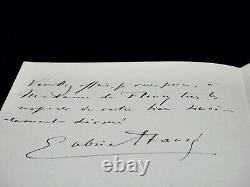 Veuillez offrir, je vous prie, à
Madame de Fleury les
respects de votre bien sincè-
rement dévoué
Gabriel Fauré